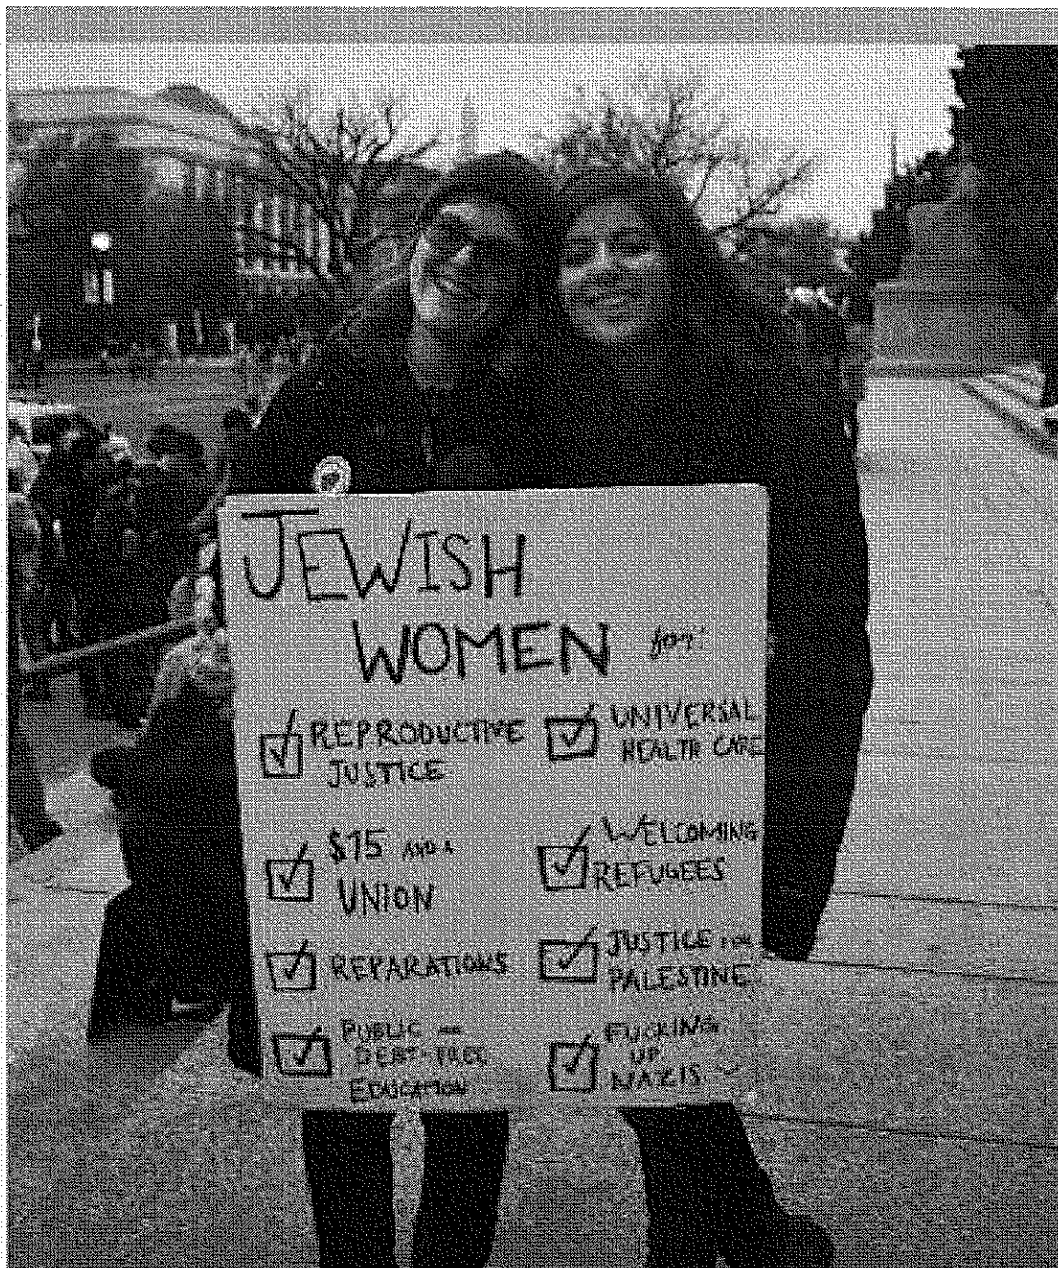 JEWISH
WOMEN for:
REPRODUCTIVE
JUSTICE
$15 AND A
UNION
REPARATIONS
PUBLIC
DEBT-FREE
EDUCATION
UNIVERSAL
HEALTH CARE
WELCOMING
REFUGEES
JUSTICE FOR
PALESTINE
FUCKING
UP
NAZIS